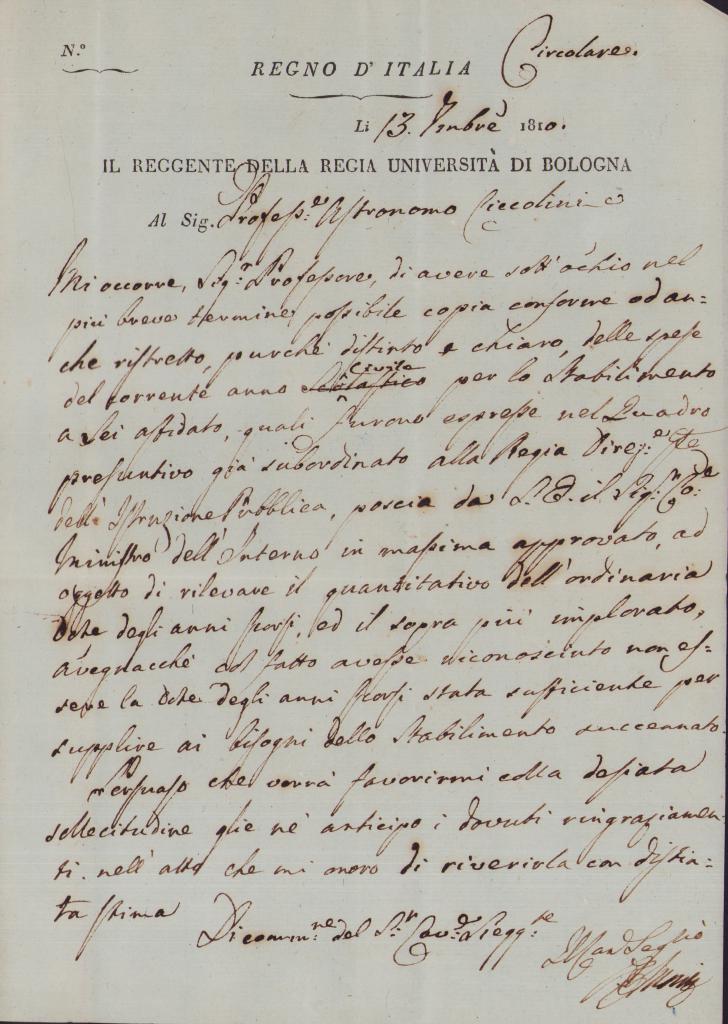 N.º
Circolare.
REGNO D'ITALIA
Li 13. 7mbrè 1810.
IL REGGENTE DELLA REGIA UNIVERSITÀ DI BOLOGNA
Al Sig. Profess.e Astronomo Ciccolini
Mi occorre, Sig.r Professore, di avere sott'occhio nel
più breve termine possibile copia conforme od an=
che ristretto, purché distinto e chiaro, delle spese
del corrente anno Scolastico Civile per lo Stabilimento
a Lei affidato, quali furono espresse nel Quadro
presuntivo già subordinato alla Regia Direz.e
dell'Istruzione Pubblica, poscia da S. E. il Sig.r Co:
Ministro dell'Interno in massima approvato, ad
oggetto di rilevare il quantitativo dell'ordinaria
Dote degli anni scorsi, ed il sopra più implorato,
avegnacchè col fatto avesse riconosciuto non es=
sere la Dote degli anni scorsi stata sufficiente per
supplire ai bisogni dello Stabilimento succennato.
Persuaso che vorrà favorirmi colla desiata
sollecitudine glie ne anticipo i dovuti ringraziamen=
ti nell'atto che mi onoro di riverirla con distin=
ta stima
Di comm.ne del S.r Cav.e Regg.te